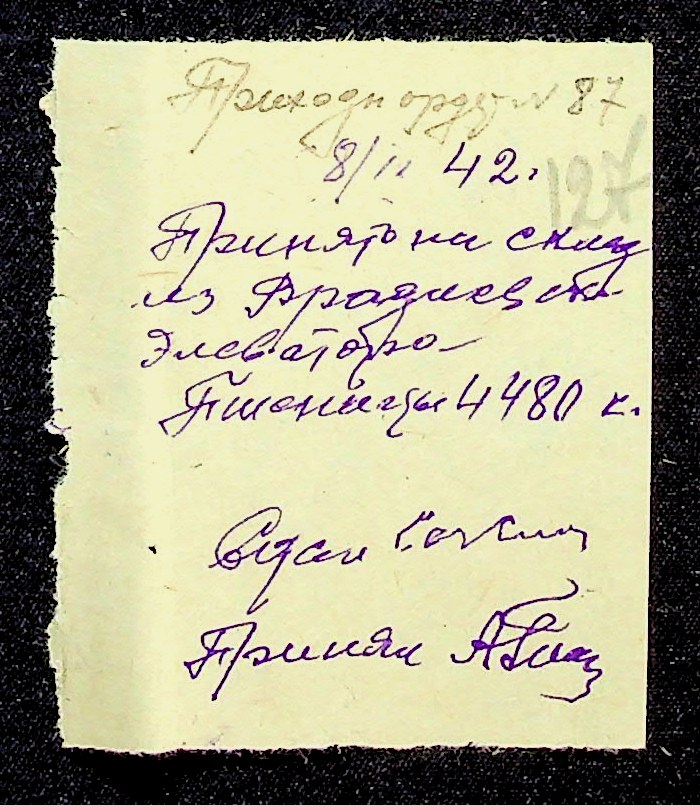 Приходн ордер № 87
8/II 42 г.
127
Принято на склад
из Врадиевск
Элеватора
Пшеницы 4480 к.
Сдал
Принял